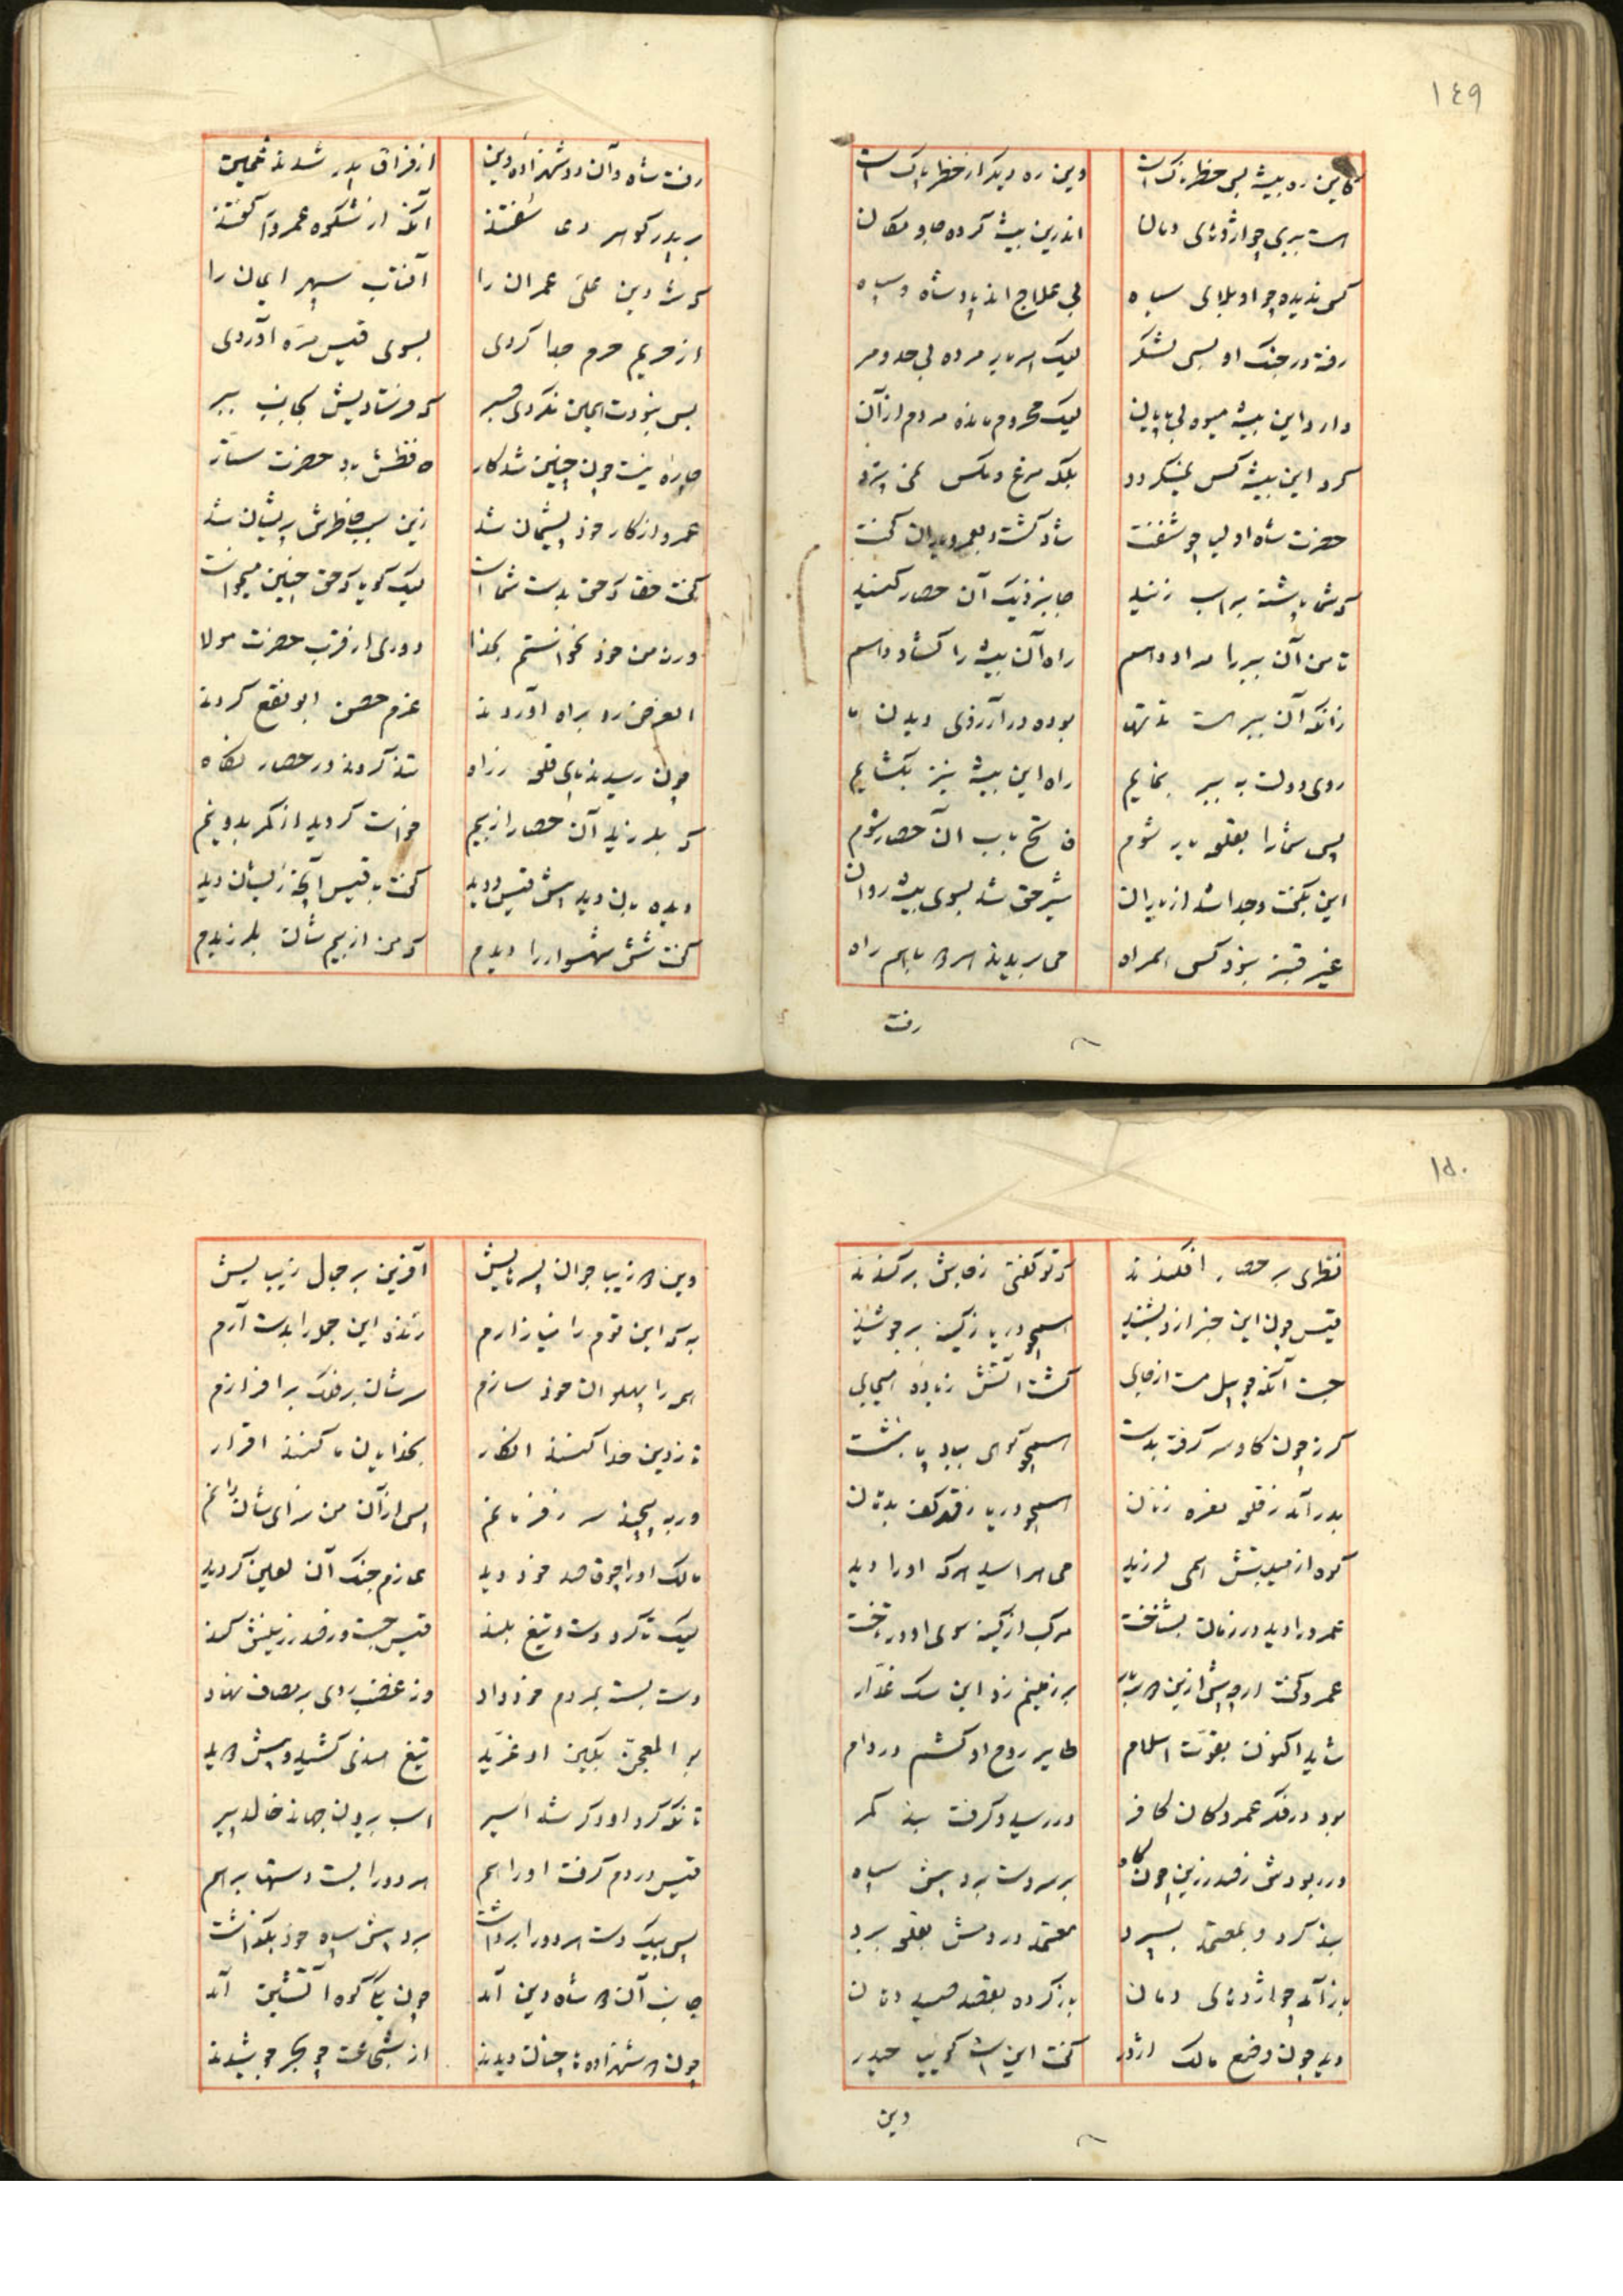 ١٤٩
کاین ره بیشه بس خطرناک است وین ره دیگر از خطر پاک است
است ببری چو اژدهای دمان اندرین بیشه کرده جا و مکان
کس ندیده چو او بلای سیاه بی علاج اند پادشاه و سپاه
رفته در جنک او بسی لشکر لیک
دارد این بیشه میوه بی پایان لیک محروم مانده مردم از آن
کرد این بیشه کس نمیکردد بلکه مرغ و مکس نمی پرد
حضرت شاه اولیا چو شنفت شاد کشت و بعمرو و یاران کفت
که شما پشته بر اسب زنید جا بنزدیک آن حصار کنید
تا من آن ببر را مراد دهم راه آن بیشه را کشاد دهم
زانکه آن ببر است مدتها بوده در آرزوی دیدن ما
روی دولت به ببر بنمایم راه این بیشه نیز بکشایم
پس شما را بقلعه یار شوم فاتح باب آن حصار شوم
این بکفت و جدا شد از یاران شیر حق شد بسوی بیشه روان
غیر قنبر نبود کس همراه می بریدند هر دو با هم راه
رفت
رفت شاه و آن دو شهزاده دین از فراق پدر شدند غمین
بر پدر کوهر دعا سفتند آنکه از شکوه عمرو را کفتند
که شه دین علی عمران را آفتاب سپهر ایمان را
از حریم حرم جدا کردی بسوی قیس مره آوردی
بس نبودت همین نکردی صبر که فرستادیش بجانب ببر
چاره نیست چون چنین شد کار حافظش باد حضرت ستار
عمرو از کار خود پشیمان شد زین سبب خاطرش پریشان شد
کفت حقا که حق بدست شما است لیک کویا که حق چنین میخواست
ورنه من خود نخواستم بخدا دوری از قرب حضرت مولا
الغرض رو براه آوردند عزم حصن ابو نقع کردند
چون رسیدند پای قلعه ز راه تند کردند در حصار نکاه
که بلرزید آن حصار از بیم خواست کردید از کمر بدو نیم
دیده بان دید پیش قیس دوید کفت با قیس آنچه زیشان دید
کفت شش شهسوار را دیدم که من از بیم شان بلرزیدم
١٥٠
نظری بر حصار افکندند که تو کفتی ز جاش برکندند
قیس چون این خبر ازو بشنید همچو دریا ز کینه برجوشید
جست آنکه چو پیل مست از جای کشت آتش زبانه هیجای
کرز چون کاوسر کرفت بدست همچو کوهی ببادپا بنشست
بدر آمد ز قلعه نعره زنان همچو دریا رفته کف بدهان
کوه از هیبتش همی لرزید می هراسید هرکه او را دید
عمرو را دید در زمان بشناخت مرکب از کینه سوی او در تاخت
عمرو کفت ارچه پیش ازین بر زمینم زد این سک غدار
شاید اکنون بقوت اسلام طایر روح او کشم در دام
بود در فکر عمرو کان کافر در رسید و کرفت بند کمر
در ربودش ز صدر زین چون کاه بر سر دست برد پیش سپاه
بند کرد و بمعتمد بسپرد معتمد در دمش بقلعه برد
باز آمد چو اژدهای دمان باز کرده بقصد صید دهان
دید چون وضع مالک اژدر کفت این است کوییا حیدر
وین
وین دو زیبا جوان پسرهایش آفرین بر جمال زیبایش
به که این قوم را نیازارم زنده این جمله را بدست آرم
همه را پهلوان خود سازم سرشان بر فلک برافرازم
تا ز دین خدا کنند انکار بخدایان ما کنند اقرار
ور بپیچند سر ز فرمانم پس از آن من سزای شان دانم
مالک او را چو قاصد خود دید عازم جنک آن لعین کردید
لیک تا کرد دست و تیغ بلند قیس جست و ز صدر زینش کند
دست بسته بمردم خود داد وز غضب روی بر مصاف نهاد
بو المعجن بکین او غرید تیغ هندی کشید و پیش دوید
تا نکه کرد او دکر شد اسیر اسب بیرون جهاند خالد پیر
قیس در دم کرفت او را هم هر دو را بست دستها بر هم
پس بیک دست هر دو را برداشت برد پیش سپاه خود بکذاشت
جانب آن دو شاه دین آمد چون یکی کوه آتشین آمد
چون دو شهزاده ها چنان دیدند از شجاعت چو بحر جوشیدند